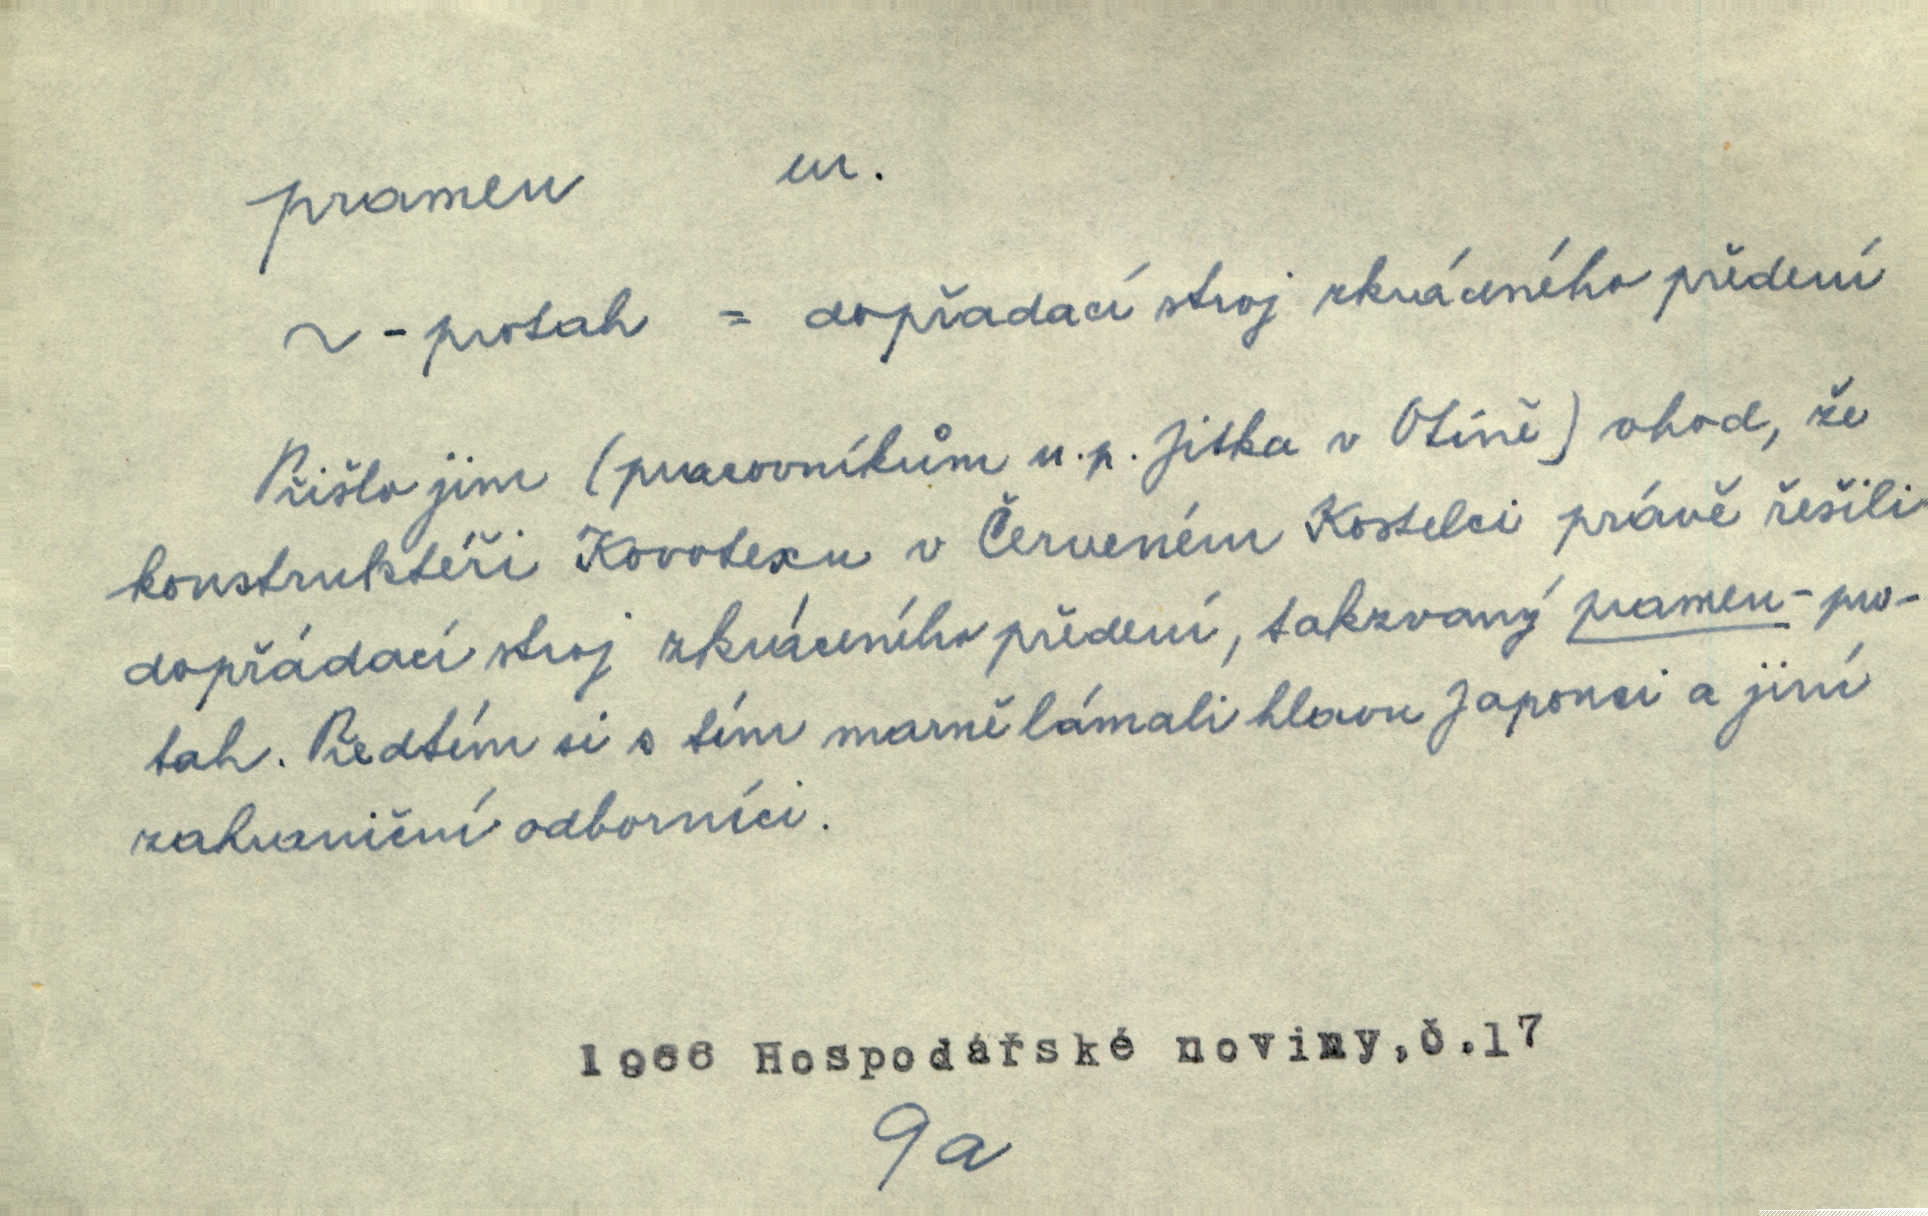 pramen m.
~ - protah = dopřadací stroj zkráceného předení
Přišlo jim (pracovníkům n.p. Jitka v Otíně) vhod, že
konstruktéři Kovotexu v Červeném Kostelci právě řešili
dopřádací stroj zkráceného předení, takzvaný pramen-pro-
tah. Předtím si s tím marně lámali hlavu Japonci a jiní
zahraniční odborníci.
1966 Hospodářské noviny,č.17
9a